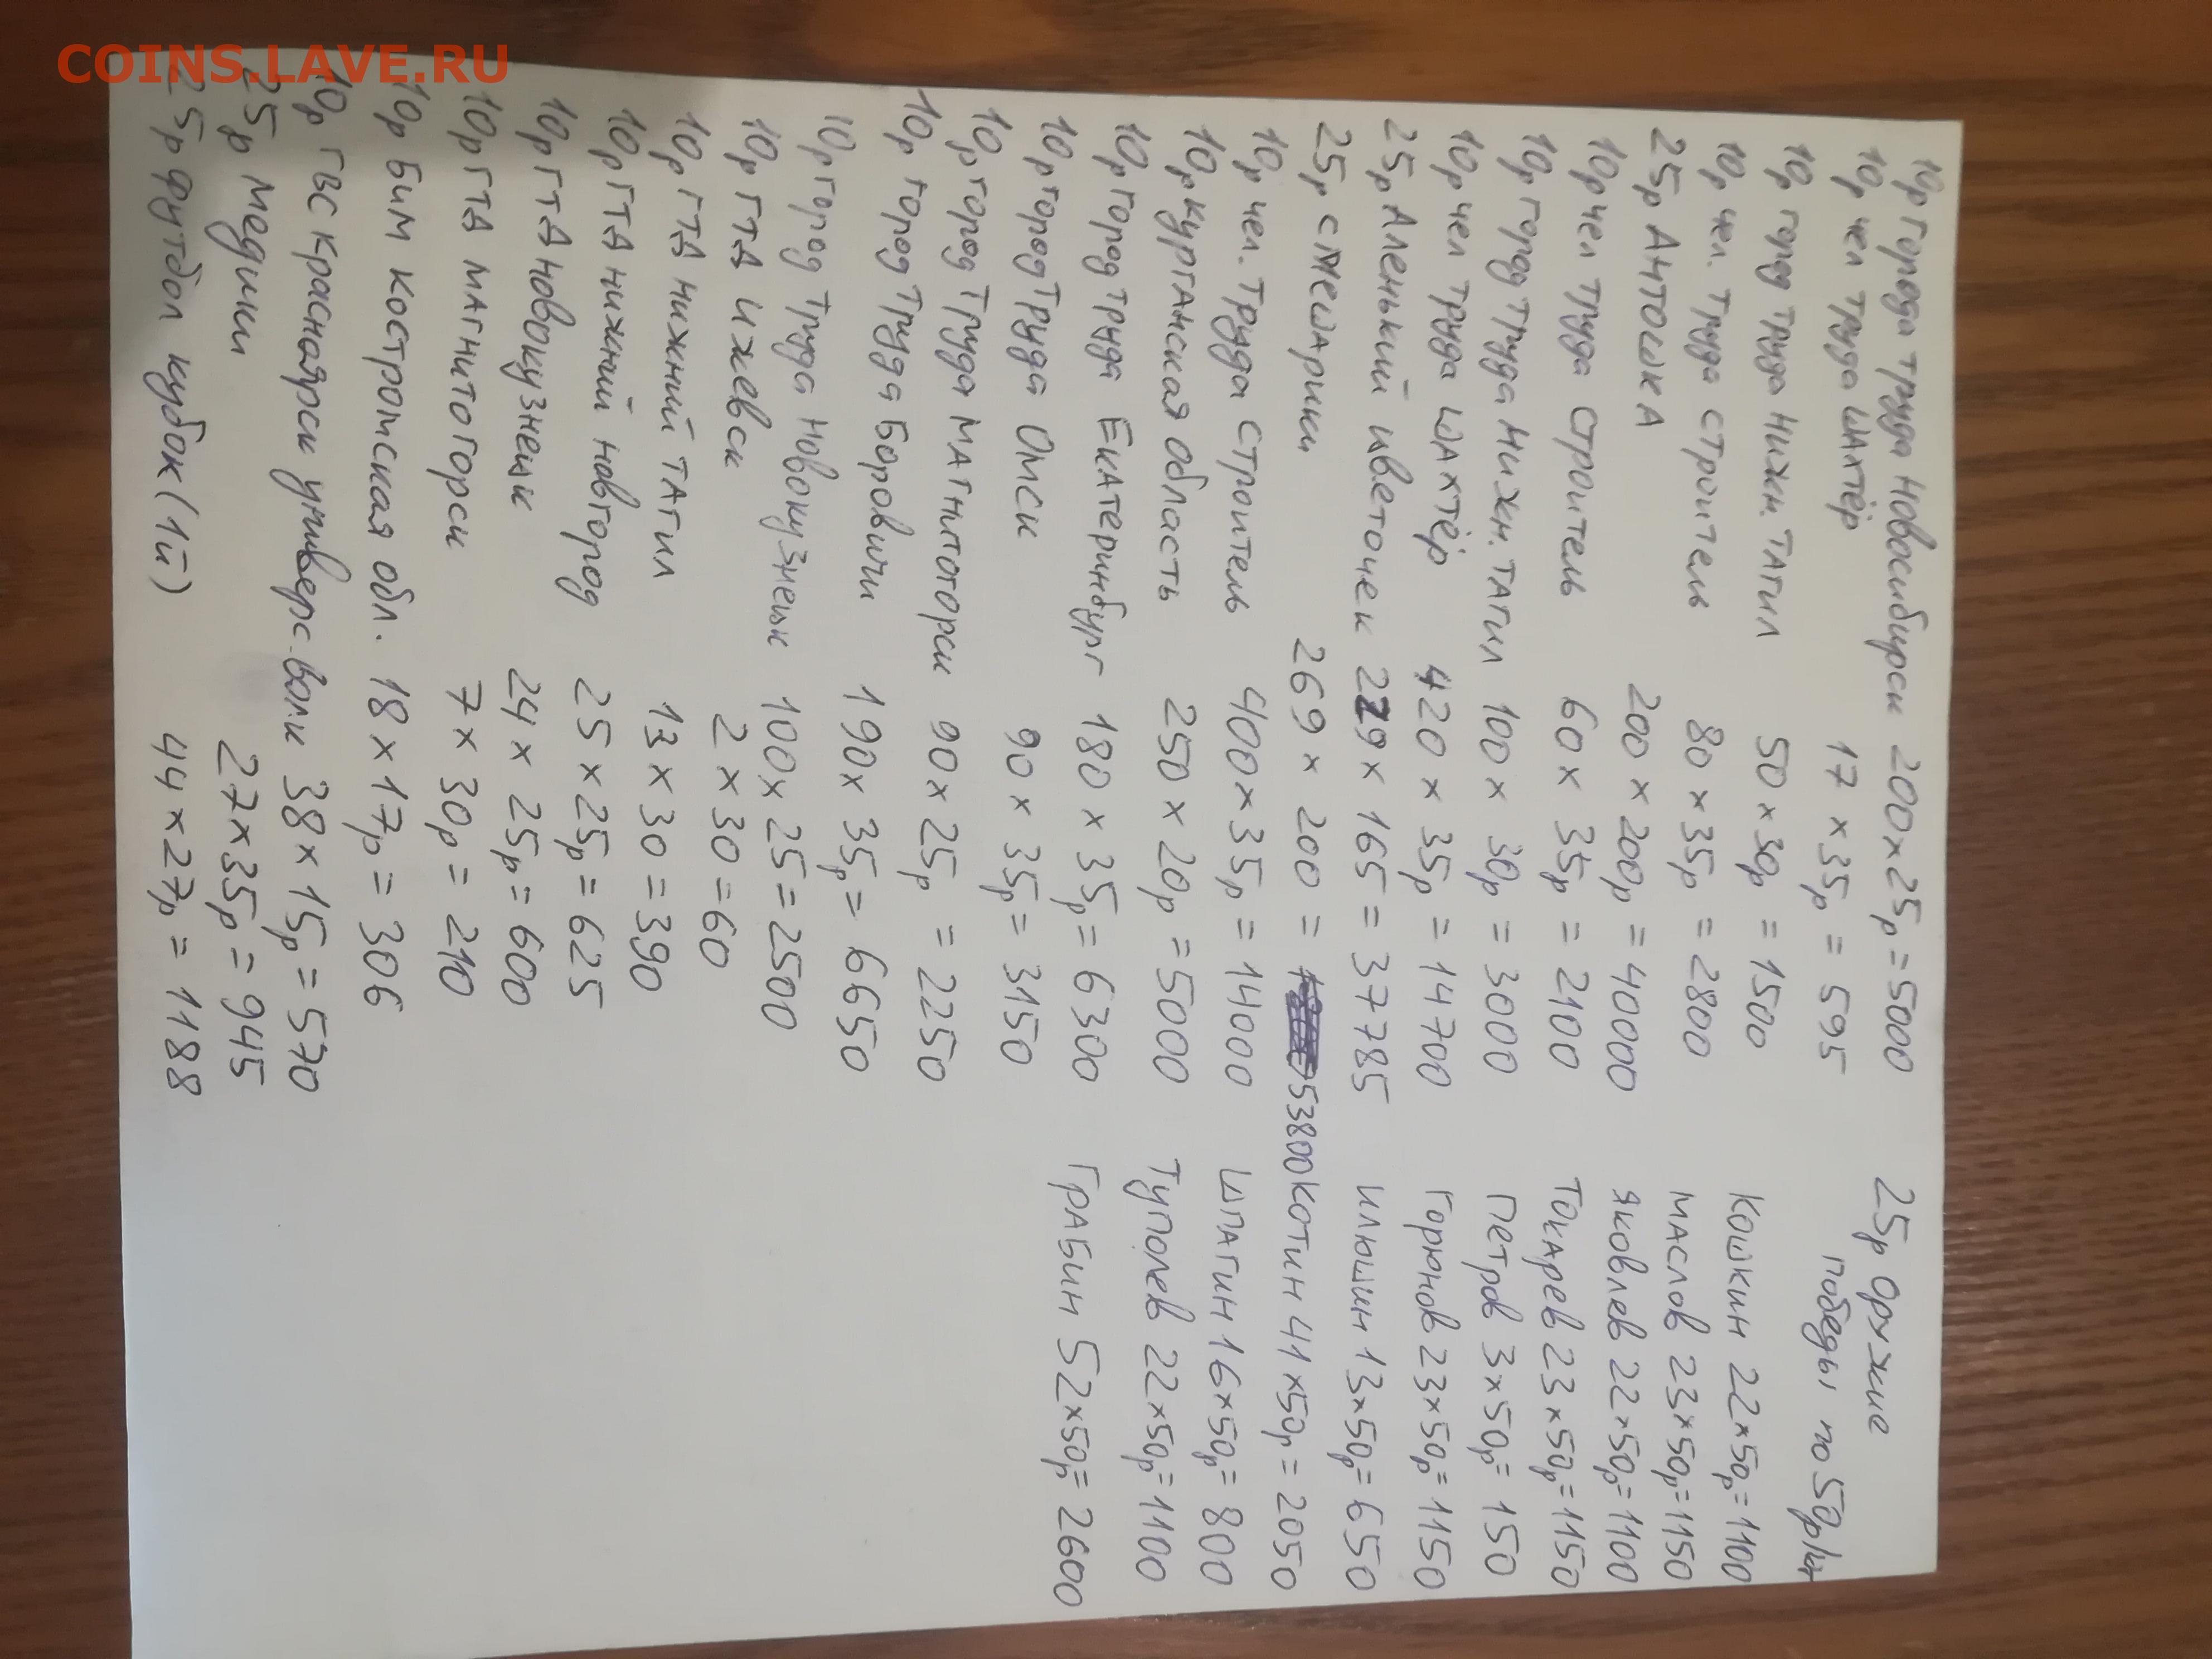 COINS.LAVE.RU
10р города труда Новосибирск 200х25р=5000
10р чел труда шахтёр 17 х 35р = 595
10р город труда Нижн. Тагил 50х30р = 1500
10р чел. труда строитель 80х35р = 2800
25р Антошка 200 х 200р = 40000
10р чел труда строитель 60х 35р = 2100
10р город труда Нижн. Тагил 100х 30р = 3000
10р чел труда шахтёр 420 х 35р = 14700
25р Аленький цветочек 229х 165 = 37785
25р смешарики 269х 200 = 53800
10р чел. труда строитель 400х35р = 14000
10р курганская область 250х20р =5000
10р город труда Екатеринбург 180 х 35р= 6300
10р город Труда Омск 90х 35р= 3150
10р город Труда Магнитогорск 90х25р = 2250
10р город Труда Боровичи 190х 35р= 6650
10р город труда новокузнецк 100х25=2500
10р ГТД ижевск 2х30=60
10р ГТД нижний тагил 13х30=390
10р ГТД нижний новгород 25х25р=625
10р ГТД новокузнецк 24х25р=600
10р ГТД магнитогорск 7х30р= 210
10р БИМ костромская обл. 18х17р= 306
10р ГВС красноярск универс-волк 38х15р=570
25р медики 27х35р=945
25р футбол кубок (1й) 44х27р=1188
25р оружие
победы по 50р/шт
Кошкин 22х50р=1100
Маслов 23х50р=1150
Яковлев 22х50р=1100
Токарев 23х50р=1150
Петров 3х50р= 150
Горюнов 23х50р=1150
Илюшин 13х50р=650
Котин 41х50р= 2050
Шпагин 16х50р= 800
Туполев 22х50р=1100
Грабин 52х50р=2600